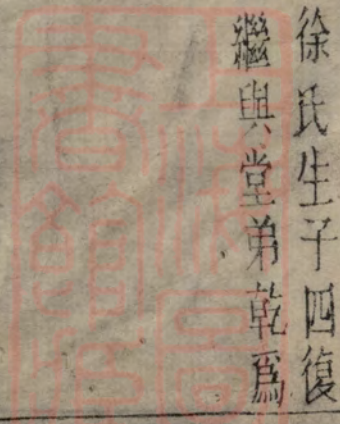 徐氏生子四復
繼與堂弟乾爲